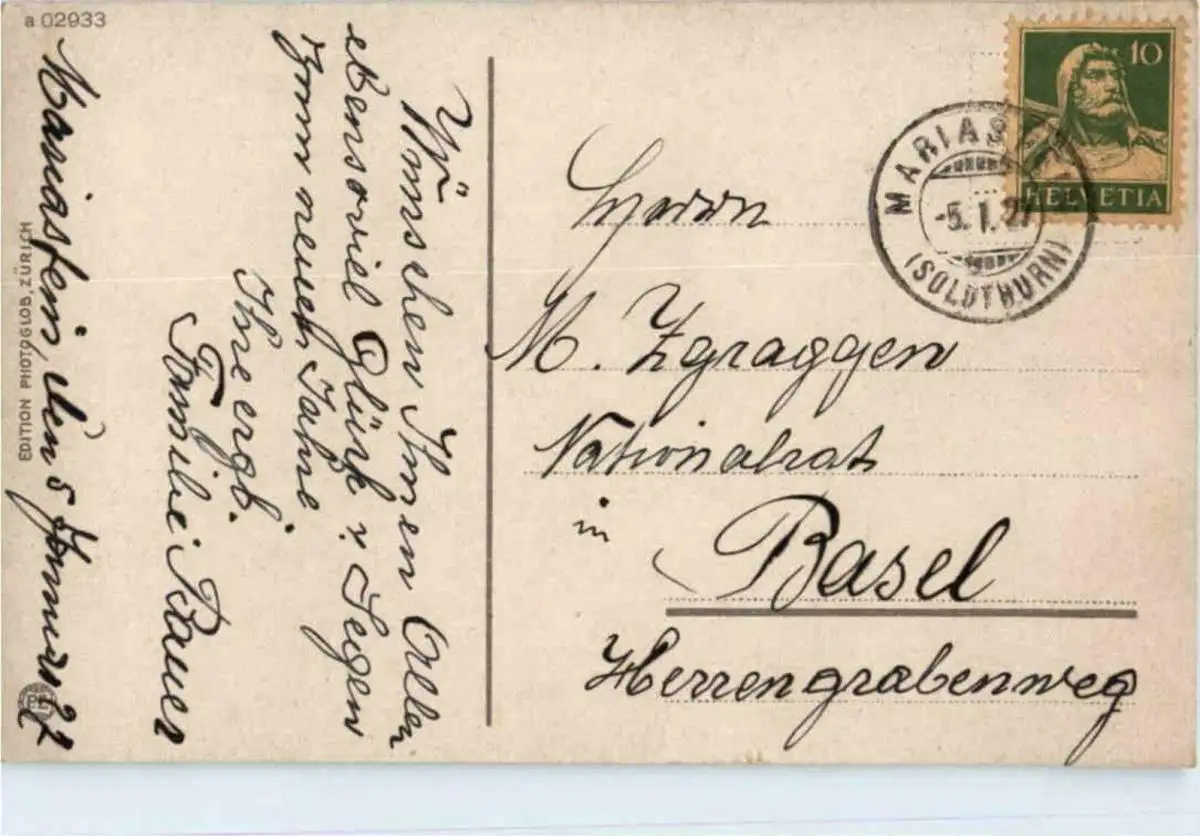 a 02933
Mariastein, den 5 Januar 27
Wir
Wünschen Ihnen Allen
ebensoviel Glück u. Segen
zum neuen Jahre
Ihre ergb.
Familie
EDITION PHOTOGLOB, ZÜRICH
10
HELVETIA
MARIAS
-5. I. 27
(SOLOTHURN)
Herrn
M. Zgraggen
Nationalrat
in Basel
Herrengrabenweg